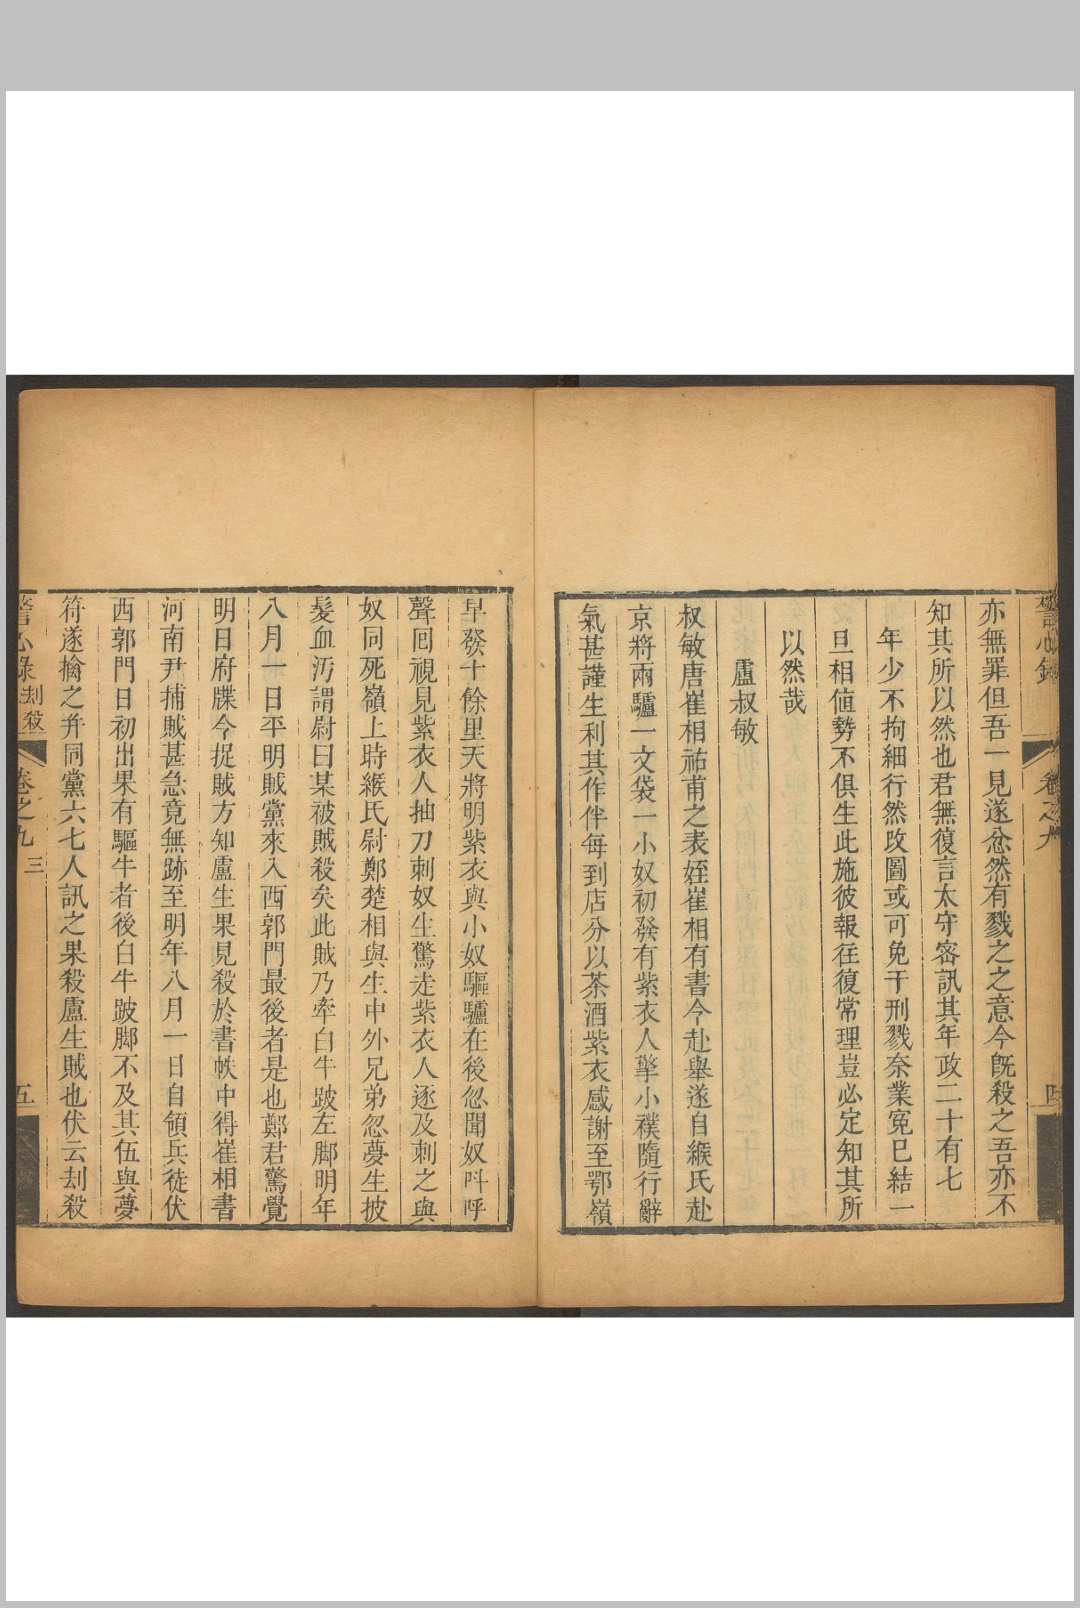 亦無罪但吾一見遂忿然有戮之之意今旣殺之吾亦不
知其所以然也君無復言太守密訊其年政二十有七
年少不拘細行然攺圖或可免于刑戮奈業冤已結一
旦相値勢不俱生此施彼報往復常理豈必定知其所
以然哉
盧叔敏
叔敏唐崔相祐甫之表姪崔相有書令赴舉遂自緱氏赴
京將兩驢一文袋一小奴初發有紫衣人擎小襆隨行辭
氣甚謹生利其作伴每到店分以茶酒紫衣感謝至鄂嶺
早發十餘里天將明紫衣與小奴驅驢在後忽聞奴呌呼
聲囘視見紫衣人抽刀刺奴生驚走紫衣人逐及刺之與
奴同死嶺上時緱氏尉鄭楚相與生中外兄弟忽夢生披
髮血汚謂尉曰某被賊殺矣此賊乃牽白牛跛左脚明年
八月一日平明賊黨來入西郭門最後者是也鄭君驚覺
明日府牒令捉賊方知盧生果見殺於書帙中得崔相書
河南尹捕賊甚急竟無跡至明年八月一日自領兵徒伏
西郭門日初出果有驅牛者後白牛跛脚不及其伍與夢
符遂擒之幷同黨六七人訊之果殺盧生賊也伏云刦殺
心錄 刦殺 卷之九 三 五